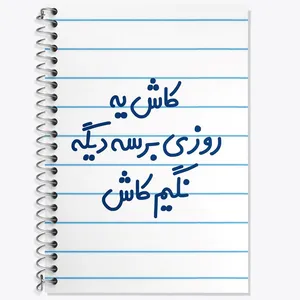 کاش یه
روزی برسه دیگه
نگیم کاش